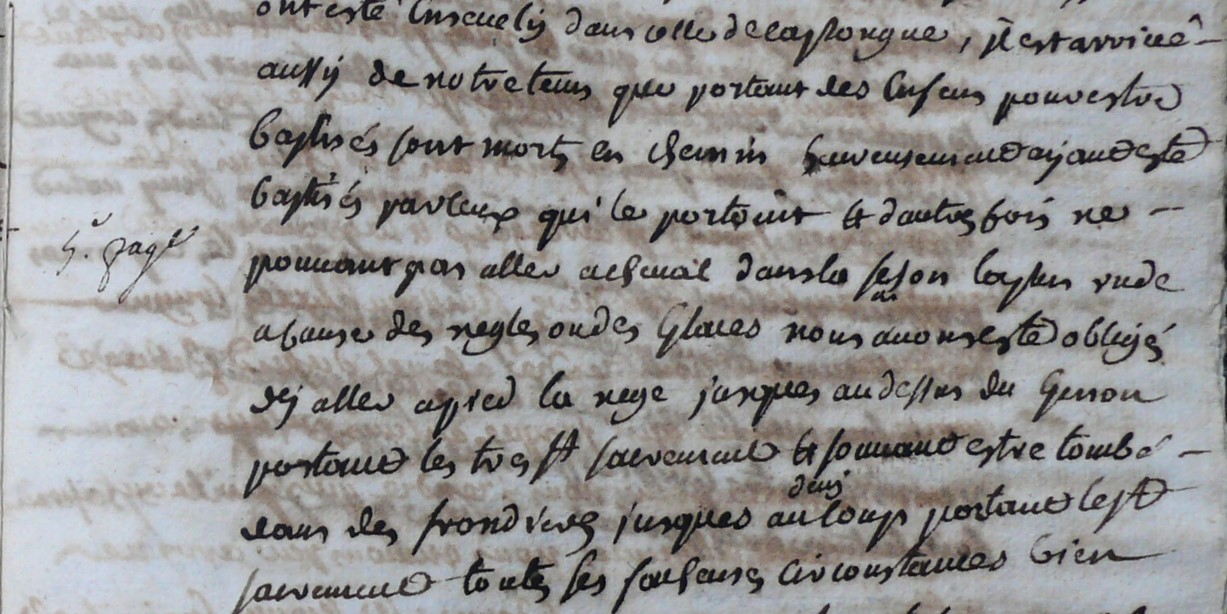 ont esté Enseuelis dans celle de lasplongue, Jl est arriué
aussy de notre tems que portant des Enfans pour estre
baptisés sont morts en chemin heureusement ayant esté
baptisés par ceux qui le portoint et d'autres fois ne
5.e page
pouuant pas aller a cheual dans la seson la plus rude
a cause des neges ou des Glaces nous auons esté obligés
dÿ aller a pied la nege jusques au dessus du Genou
portant les tres st sacrement et souuant estre tombé
dans des frondrieres jusques au deuj loup portant le st
sacrement toutes ses facheuses circonstances bien